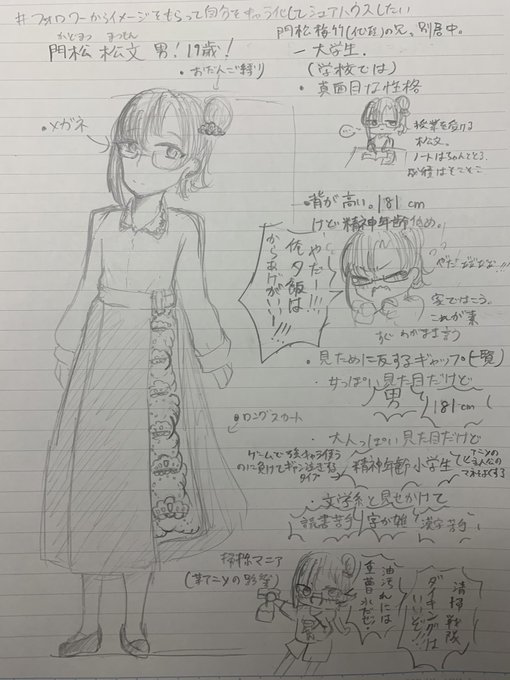 #フォロワーからイメージをもらって自分をキャラ化してシェアハウスしたい
かどまつ まつ
門松 松文 男!19歳!
・おだんご縛り
・メガネ
門松梅竹(化粧)の兄。別居中。
一 大学生.
(学校では)
・真面目な性格
授業を受ける
松文。
ノートはちゃんととる。
成績はそこそこ
・背が高い。181cm
けど精神年齢低め。
やだー!!!
俺夕飯は
からあげがいいー!!!
やだやだやだ!!!
家ではこう。
これが素
すぐわがまま言う
・見ために反するギャップ(一覧)
・女っぽい見た目だけど
男 181cm
・ロングスカート
・大人っぽい見た目だけど
ゲームで強キャラ使う
のに負けてギャン泣きする
タイプ
精神年齢小学生
アニメの
主人公の
マネをよくする
・文学系と見せかけて
読書苦手 字が雑 漢字苦手
掃除マニア
(某アニメの影響)
油汚れには
重曹水だぜ!
清掃戦隊
ダイキングは
いいぞ!!!